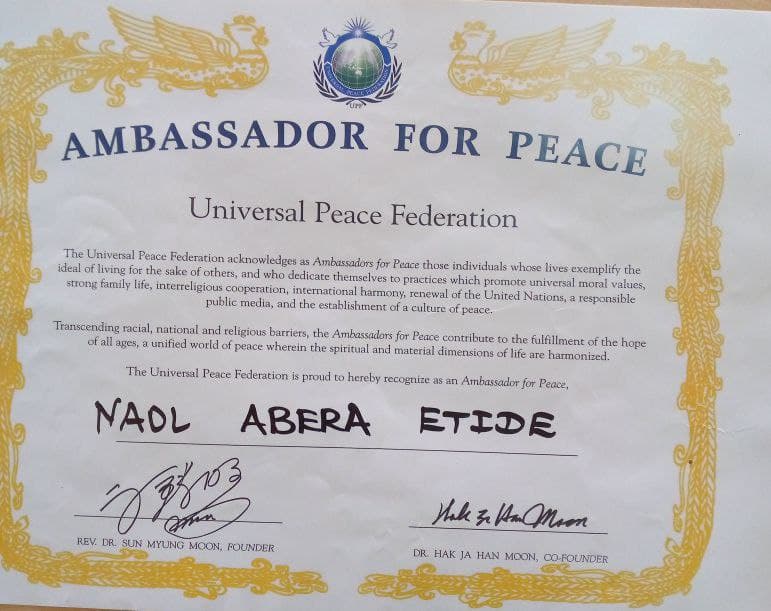 UNIVERSAL PEACE FEDERATION
UPF
AMBASSADOR FOR PEACE
Universal Peace Federation
The Universal Peace Federation acknowledges as Ambassadors for Peace those individuals whose lives exemplify the
ideal of living for the sake of others, and who dedicate themselves to practices which promote universal moral values,
strong family life, interreligious cooperation, international harmony, renewal of the United Nations, a responsible
public media, and the establishment of a culture of peace.
Transcending racial, national and religious barriers, the Ambassadors for Peace contribute to the fulfillment of the hope
of all ages, a unified world of peace wherein the spiritual and material dimensions of life are harmonized.
The Universal Peace Federation is proud to hereby recognize as an Ambassador for Peace,
NAOL ABERA ETIDE
Hak Ja Han Moon
REV. DR. SUN MYUNG MOON, FOUNDER
DR. HAK JA HAN MOON, CO-FOUNDER